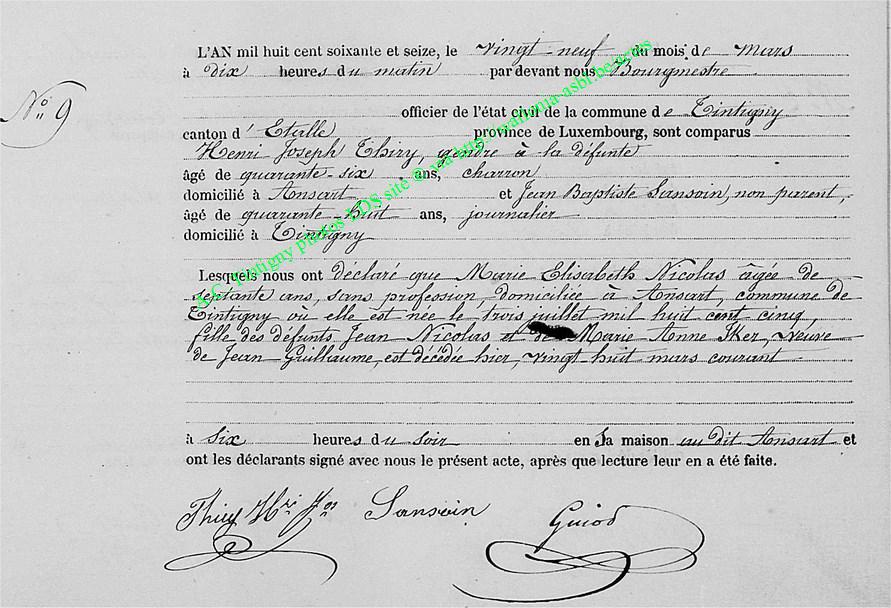 L'AN mil huit cent soixante et seize, le vingt-neuf du mois de mars
à dix heures du matin par devant nous Bourgmestre
N° 9
officier de l'état civil de la commune de Tintigny
canton d'Etalle province de Luxembourg, sont comparus
Henri Joseph Thiry, gendre à la défunte
âgé de quarante-six ans, charron
domicilié à Ansart et Jean Baptiste Sansoin, non parent,
âgé de quarante-huit ans, journalier
domicilié à Tintigny
Lesquels nous ont déclaré que Marie Elisabeth Nicolas âgée de
septante ans, sans profession, domiciliée à Ansart, commune de
Tintigny où elle est née le trois juillet mil huit cent cinq,
fille des défunts Jean Nicolas et de Marie Anne Iker, veuve
de Jean Guillaume, est décédée hier, vingt huit mars courant
à six heures du soir en sa maison au dit Ansart et
ont les déclarants signé avec nous le présent acte, après que lecture leur en a été faite.
Thiry Hri Jos Sansoin Guiod
A.C. Tintigny photos LDS site © via http://